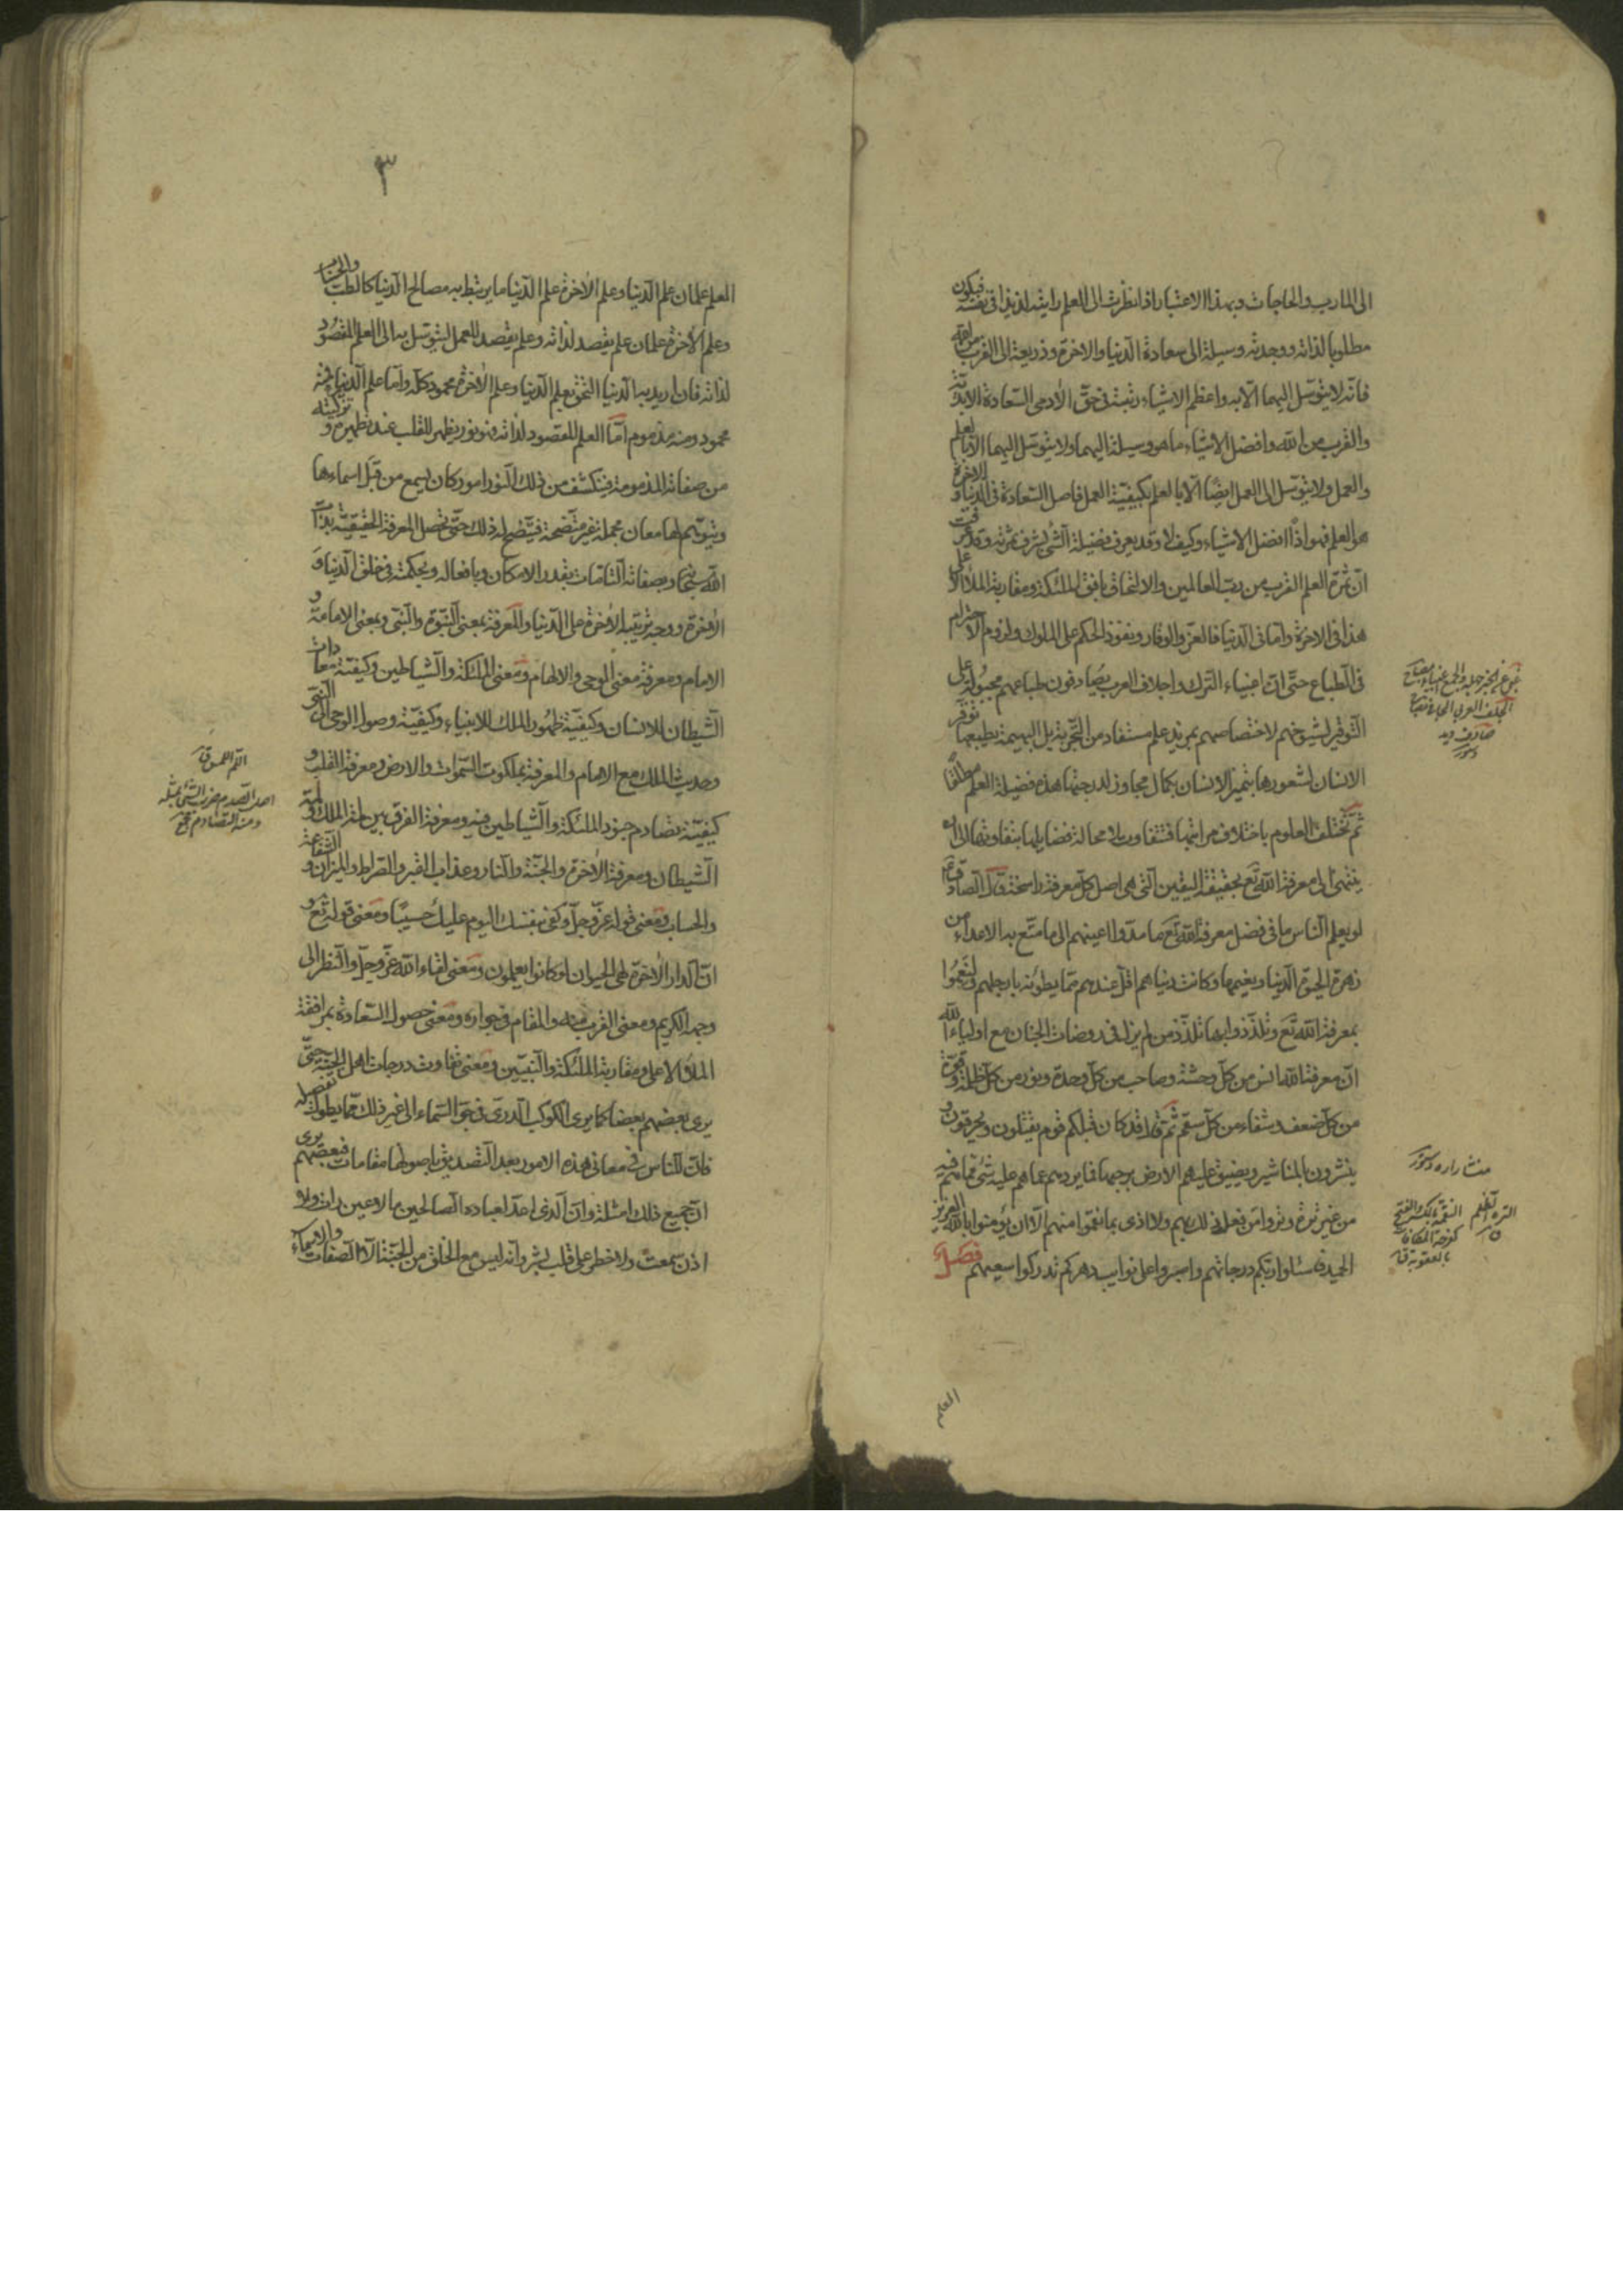 الى المارب والحاجات وبهذا الاعتبار اذا نظرت الى العلم رايته لذيذا فى نفسه فيكون
مطلوبا لذاته ووجدته وسيلة الى سعادة الدنيا والاخرة وذريعة الى القرب من الله
فانه لا يتوسل اليهما الا به واعظم الاشياء رتبة فى حق الادمى السعادة الابدية
والقرب من الله وافضل الاشياء ما هو وسيلة اليهما ولا يتوسل اليهما الا بالعلم
والعمل ولا يتوسل الى العمل ايضا الا بالعلم بكيفية العمل فاصل السعادة فى الدنيا والاخرة
هو العلم فهو اذًا افضل الاشياء وكيف لا وقد يعرف فضيلة الشئ بشرف ثمرته وقد عرفت
ان ثمرة العلم القرب من رب العالمين والالتحاق بافق الملئكة ومقاربة الملأ الاعلى
هذا فى الاخرة واما فى الدنيا فالعز والوقار ونفوذ الحكم على الملوك ولزوم الاحترام
فى الطباع حتى ان اغبياء الترك واجلاف العرب يصادفون طباعهم مجبولة على
التوقير لشيوخهم لاختصاصهم بمزيد علم مستفاد من التجربة بل البهيمة بطبعها توقر
الانسان لشعورها بتميز الانسان بكمال مجاوز لدرجتها هذه فضيلة العلم مطلقا
ثم تختلف العلوم باختلاف مراتبها فتتفاوت لا محالة فضايلها بتفاوتها الى ان
ينتهى الى معرفة الله تع بحقيقة اليقين التى هى اصل كل معرفة راسخة قال الصادق ع
لو يعلم الناس ما فى فضل معرفة الله تع ما مدوا اعينهم الى ما متع به الاعداء من
زهرة الحيوة الدنيا ونعيمها وكانت دنياهم اقل عندهم مما يطؤنه بارجلهم ولنعموا
بمعرفة الله تع وتلذذوا بها تلذذ من لم يزل فى روضات الجنان مع اولياء الله
ان معرفة الله انس من كل وحشة وصاحب من كل وحدة ونور من كل ظلمة وقوة
من كل ضعف وشفاء من كل سقم ثم قال قد كان قبلكم قوم يقتلون ويحرقون و
ينشرون بالمناشير ويضيق عليهم الارض برحبها فما يردهم عما هم عليه شئ مما هم فيه
من غير ترة وتروا من فعل ذلك بهم ولا اذى بما نقموا منهم الا ان يؤمنوا بالله العزيز
الحميد فاسئلوا ربكم درجاتهم واصبروا على نوايب دهركم تدركوا سعيهم فصل
العلم
منشار اره كنز
٣
العلم علمان علم الدنيا وعلم الاخرة علم الدنيا ما يرتبط به مصالح الدنيا كالطب والحساب
وعلم الاخرة علمان علم يقصد لذاته وعلم يقصد للعمل ليتوسل به الى العلم المقصود
لذاته فان اريد به الدنيا التحق بعلم الدنيا وعلم الاخرة محمود كله واما علم الدنيا فمنه
محمود ومنه مذموم اما العلم المقصود لذاته فهو نور يظهر للقلب عند تطهيره و تزكيته
من صفاته المذمومة فتكشف من ذلك النور امور كان يسمع من قبل اسماءها
ويتوهم لها معان مجملة غير متضحة فيتضح له ذلك حتى تحصل المعرفة الحقيقية بذات
الله سبحانه وبصفاته التامات بقدر الامكان وبافعاله وبحكمته فى خلق الدنيا و
الاخرة ووجه ترتيبه الاخرة على الدنيا والمعرفة بمعنى النبوة والنبى وبمعنى الامامة و
الامام ومعرفة معنى الوحى والالهام ومعنى الملئكة والشياطين وكيفية معادات
الشيطان للانسان وكيفية ظهور الملك للانبياء وكيفية وصول الوحى الى النبى و
وحديث الملك مع الامام والمعرفة بملكوت السموات والارض ومعرفة القلب و
كيفية تصادم جنود الملئكة والشياطين فيه ومعرفة الفرق بين لمة الملك و لمة
الشيطان ومعرفة الاخرة والجنة والنار وعذاب القبر والصراط والميزان و الشفاعة
والحساب ومعنى قوله عز وجل وكفى بنفسك اليوم عليك حسيبًا ومعنى قوله تع و
ان الدار الاخرة لهى الحيوان لو كانوا يعلمون ومعنى لقاء الله عز وجل والنظر الى
وجهه الكريم ومعنى القرب منه والمقام فى جواره ومعنى حصول السعادة بمرافقة
الملأ الاعلى ومقاربة الملئكة والنبيين ومعنى تفاوت درجات اهل الجنة حتى
يرى بعضهم بعضا كما يرى الكوكب الدرى فى جو السماء الى غير ذلك مما يطول تفصيله
فان للناس فى معانى هذه الامور بعد التصديق باصولها مقامات فبعضهم يرى
ان جميع ذلك امثلة وان الذى اعد لعباده الصالحين ما لا عين رات ولا
اذن سمعت ولا خطر على قلب بشر وانه ليس مع الخلق من الجنة الا الصفات والاسماء
اصل الصدم ضرب الشئ بمثله
ومنه التصادم